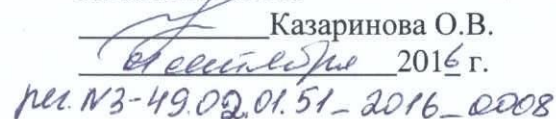 Казаринова О.В.
01 сентября 2016 г.
рег. №3-49.02.01.51-2016-0008